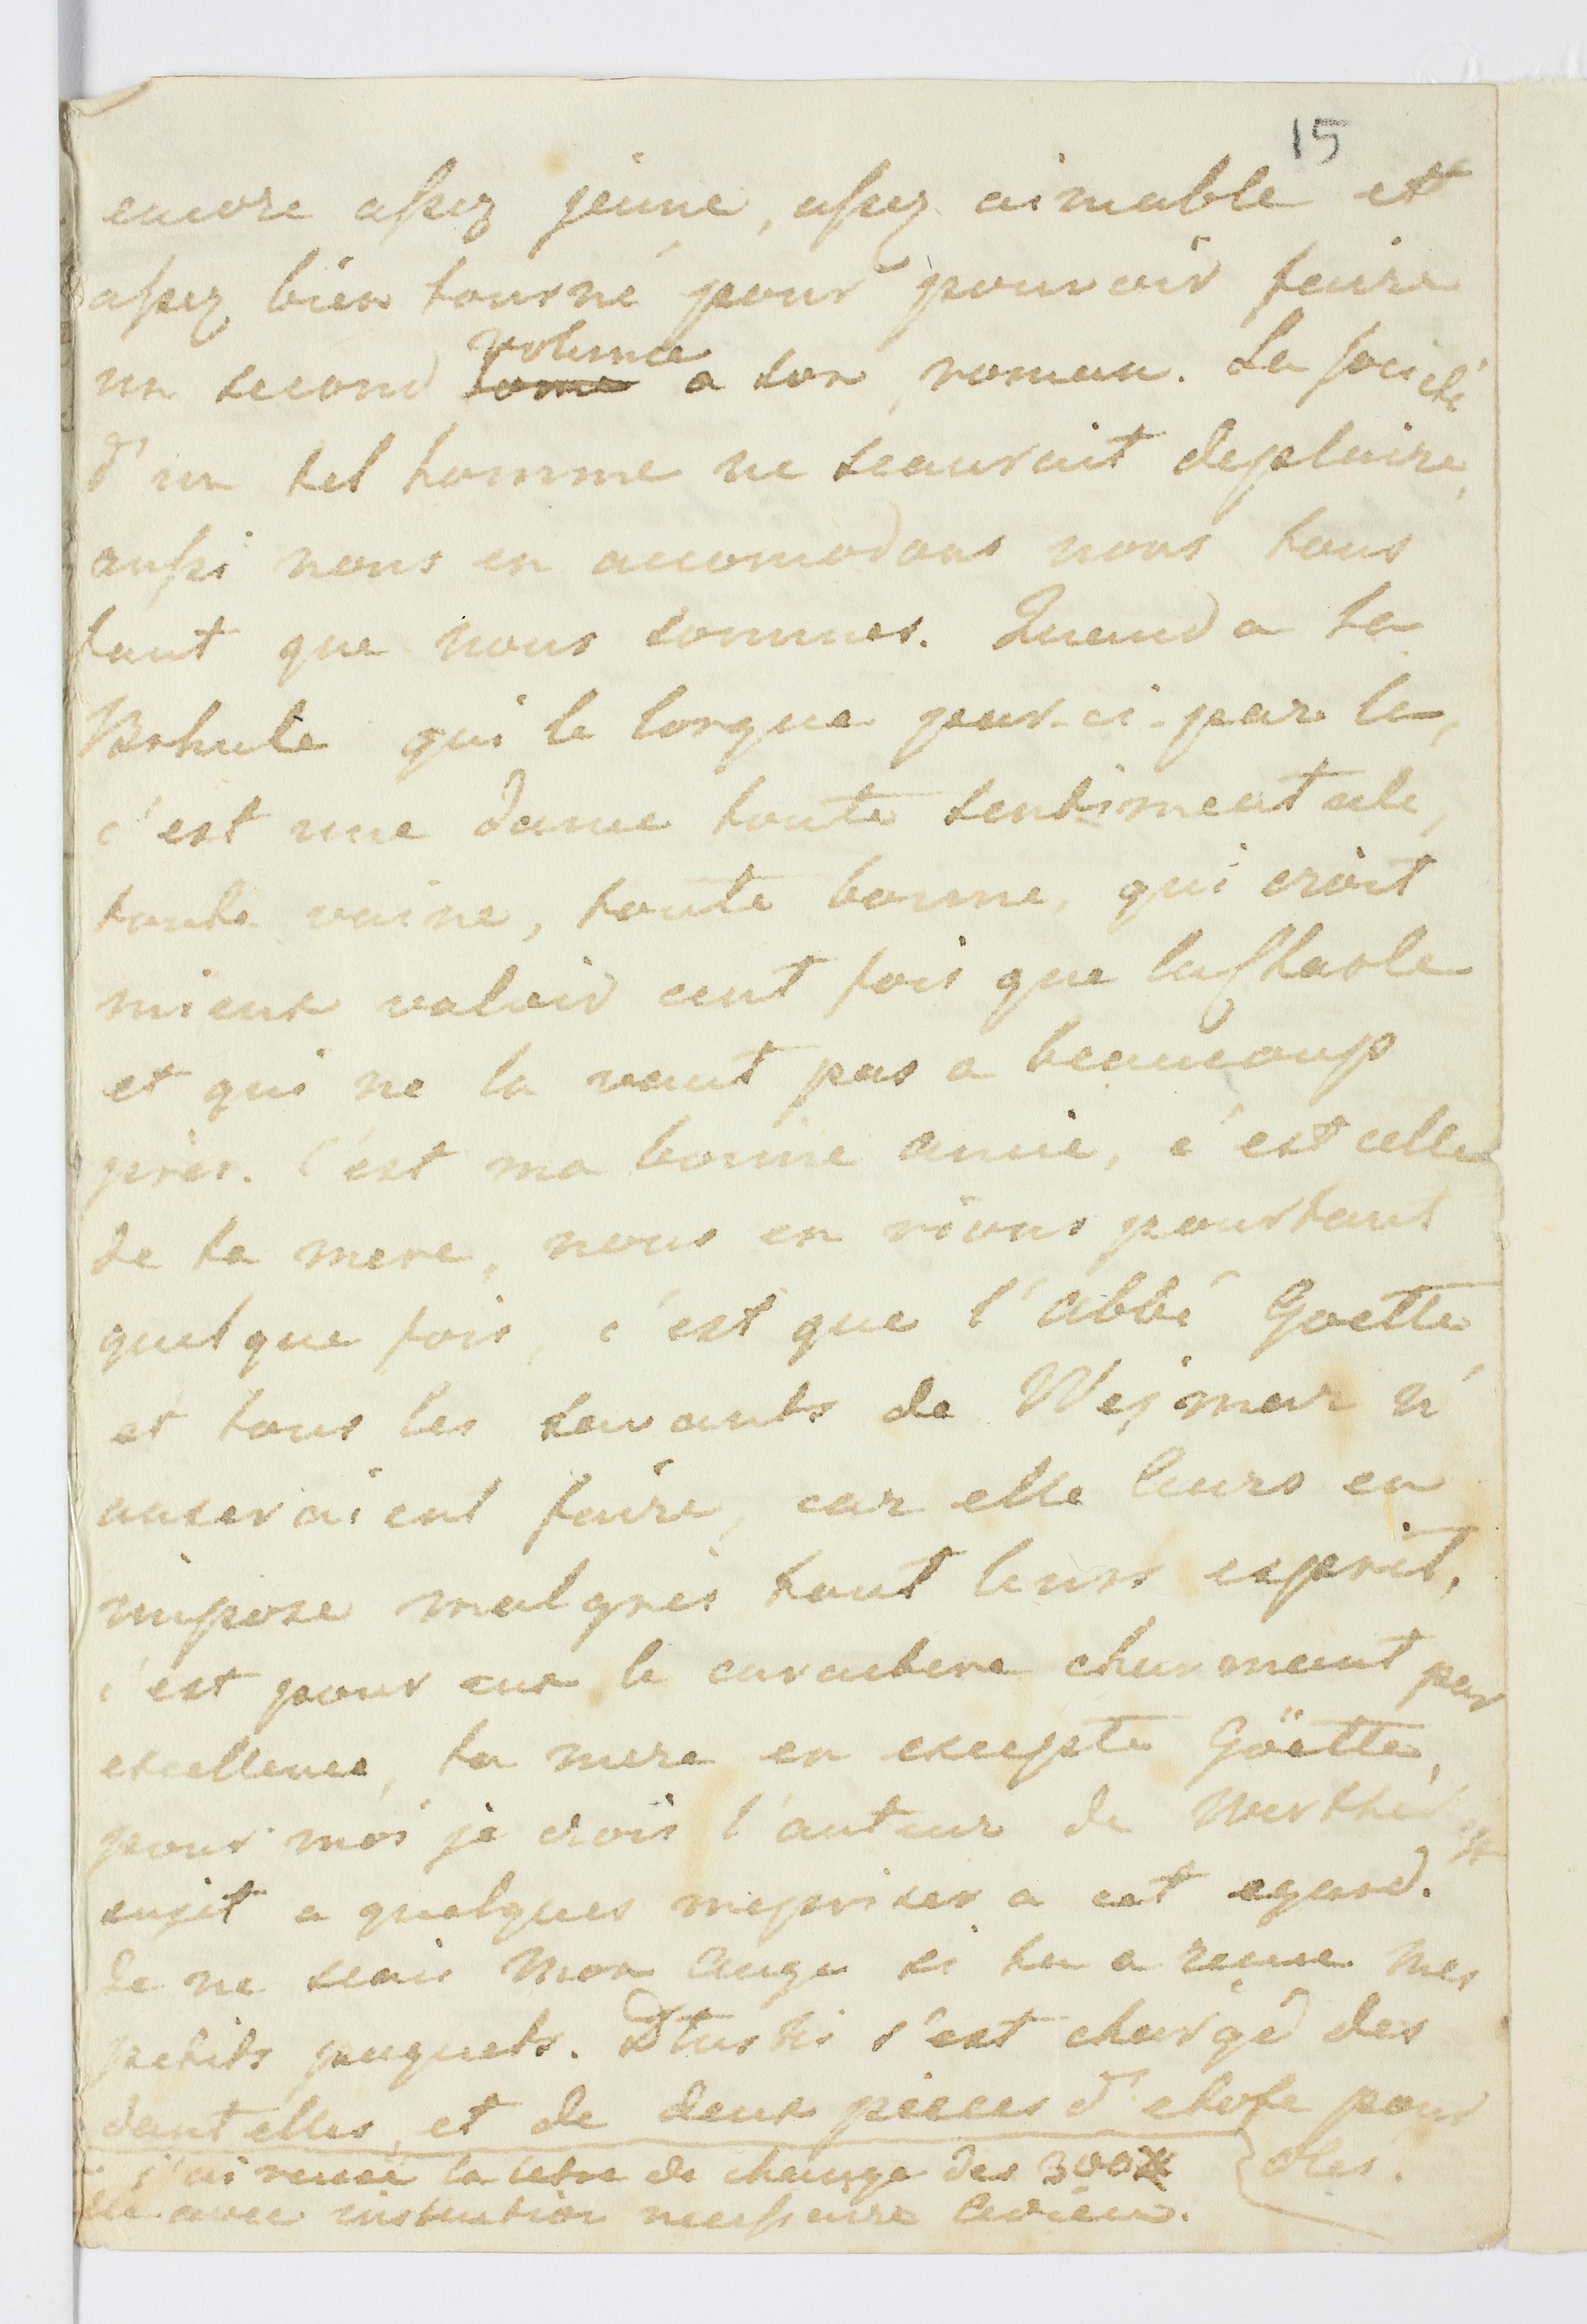 15
encore assez jeune, assez aimable et
assez bien tourné pour pouvoir faire
un second tome volume a son roman. La société
d'un tel homme ne scauroit deplaire,
aussi nous en accomodons nous tous
tant que nous sommes. Quand a ta
qui le lorgne par-ci-par la,
c'est une dame toute sentimentale,
toute vaine, toute bonne, qui croit
mieux valoir cent fois que la
et qui ne la vaut pas a beaucoup
près. C'est ma bonne amie, c'est celle
de ta mere, nous en rions pourtant
quelque fois, c'est que l'abbé Goette
et tous les savants de Wejmar n'
auseraient faire, car elle leurs en
impose malgrès tout leurs esprit,
c'est pour eux le caractere charmant par
excellence, ta mere en excepte Goëtte,
pour moi je crois l'auteur de Werther est
sujet a quelques meprises a cet egard.
Je ne scais mon Ange si tu a reçue mes
petits paquets. s'est chargé des
dantelles, et de deux pieces d'etofe pour
j'ai la letre de change des 300#
avec necessaire